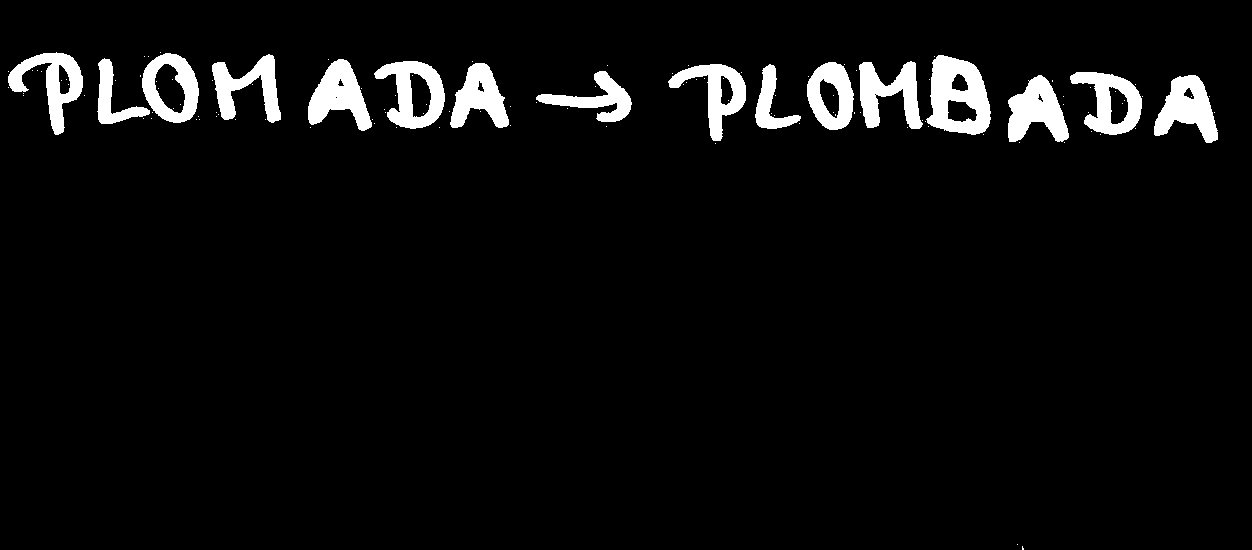 PLOMADA → PLOMBADA